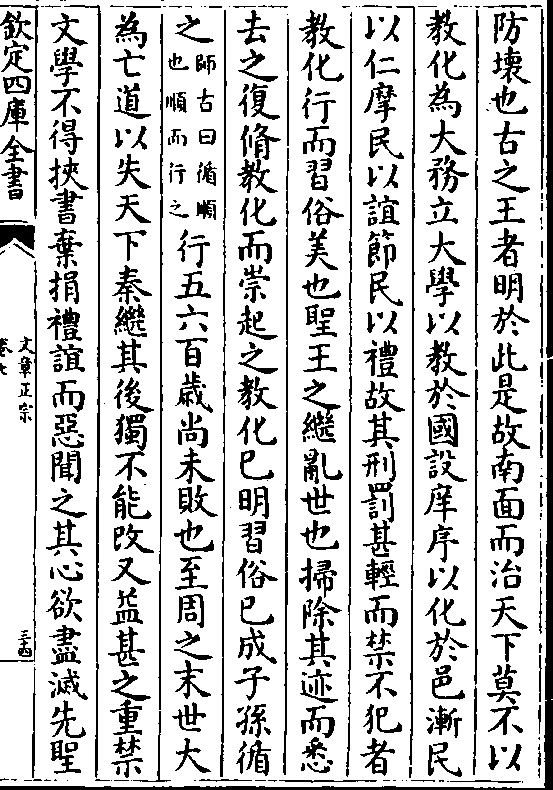 防壞也古之王者明於此是故南面而治天下莫不以
教化為大務立大學以教於國設庠序以化於邑漸民
以仁摩民以誼節民以禮故其刑罰甚輕而禁不犯者
教化行而習俗美也聖王之繼亂世也掃除其迹而悉
去之復脩教化而崇起之教化已明習俗已成子孫循
之師古曰循順也順而行之行五六百歳尚未敗也至周之末世大
為亡道以失天下秦繼其後獨不能改又益甚之重禁
文學不得挾書棄捐禮誼而惡聞之其心欲盡滅先聖
欽定四庫全書
文章正宗
卷七
三十四